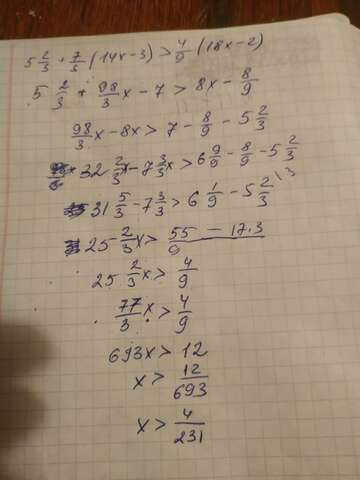 5 2/3 + 7/3 (14x-3) > 4/9 (18x-2)
5 2/3 + 98/3 x - 7 > 8x - 8/9
98/3 x - 8x > 7 - 8/9 - 5 2/3
32 2/3 x - 7 3/3 x > 6 9/9 - 8/9 - 5 2/3
31 5/3 - 7 3/3 > 6 1/9 - 5 2/3 \3
25 2/3 x > 55 - 17.3 / 9
25 2/3 x > 4/9
77/3 x > 4/9
693x > 12
x > 12/693
x > 4/231